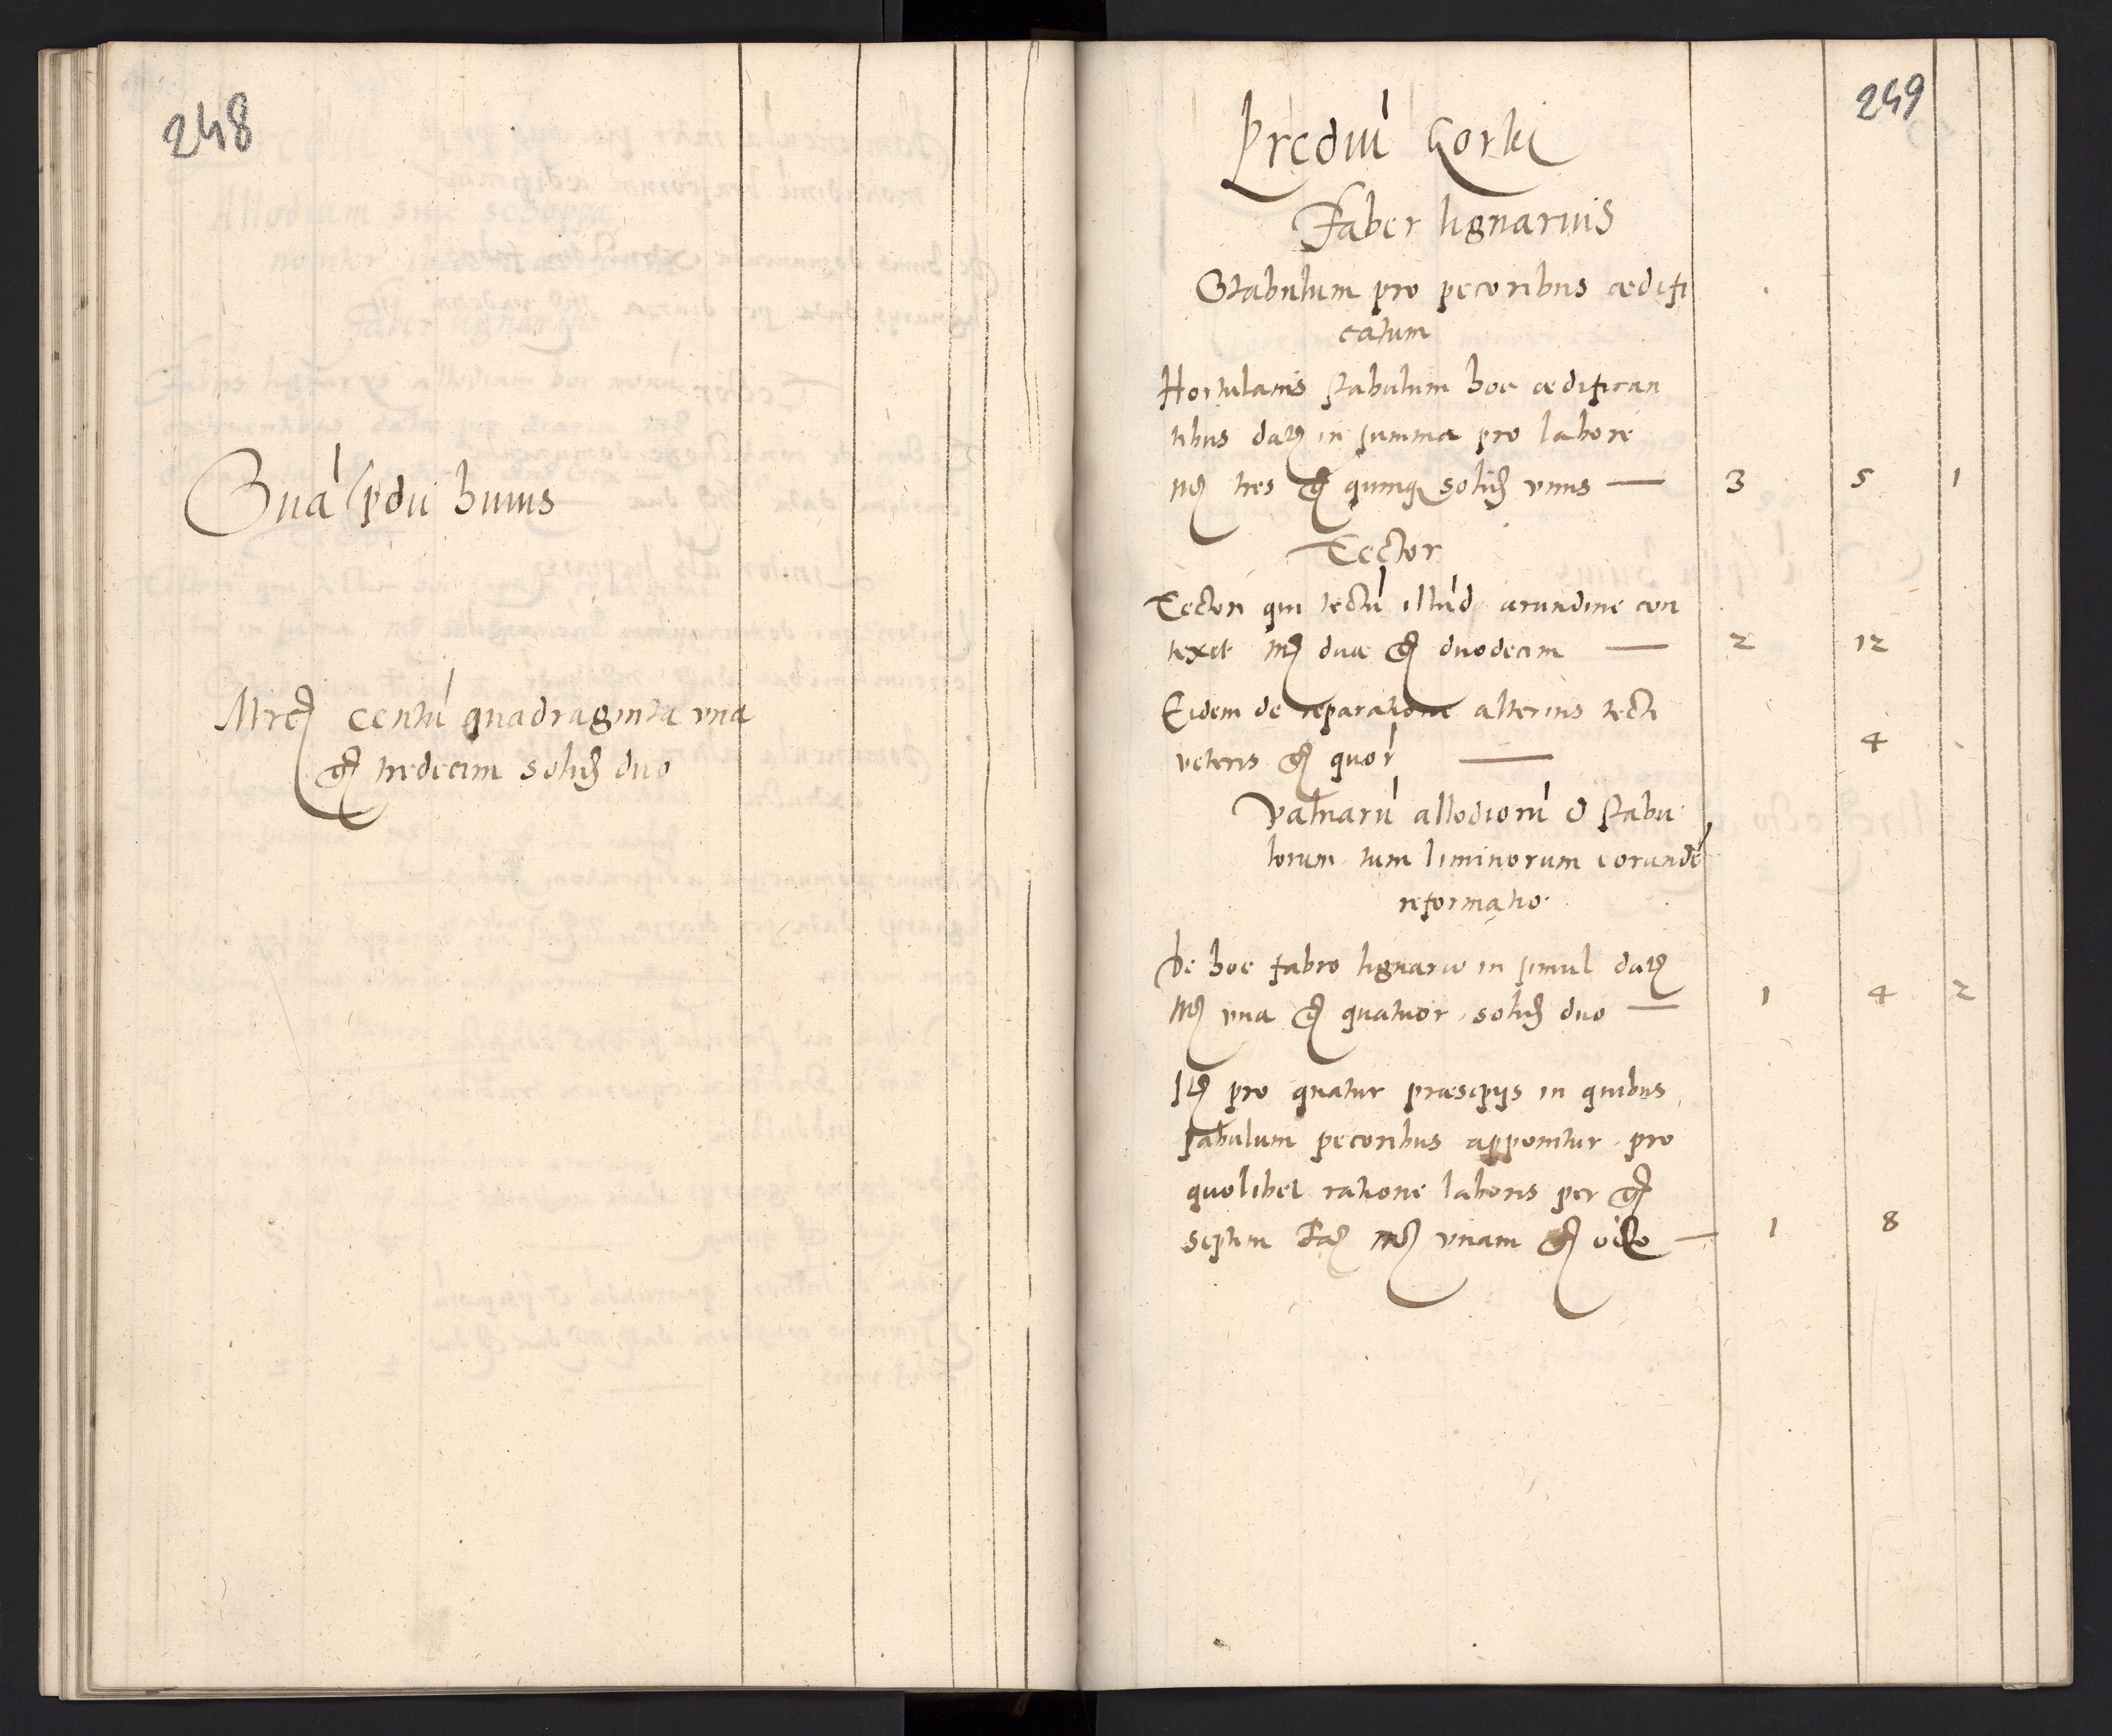 248
Sua˜ p̃dii huius
Mrc̃ centũ quadraginta una
gr̃ tredecim solid̃ duo
249
Prediũ Gorki
Faber lignarius
Stabulum pro pecoribus ædifi
catum
Hortulanis stabulum hoc ædifican
tibus datꝫ in summa pro labore
mr̃ tres gr̃ quinqꝫ solid̃ unus — 3 5 1
Tector
Tectori qui tectũ illud arundine con
texit mr̃ duæ gr̃ duodecim — 2 12
Eidem de reparatione alterius tecti
veteris gr̃ quor̃ — 4
Valuarũ allodiorũ & stabu
lorum tum liminorum eorundẽ
reformatio
De hoc fabro lignario in simul datꝫ
mr̃ una gr̃ quatuor solid̃ duo — 1 4 2
Itꝫ pro quatur præsepijs in quibus
pabulum pecoribus apponitur pro
quolibet ratione laboris per gr̃
septem fac̃ mr̃ unam gr̃ octo — 1 8